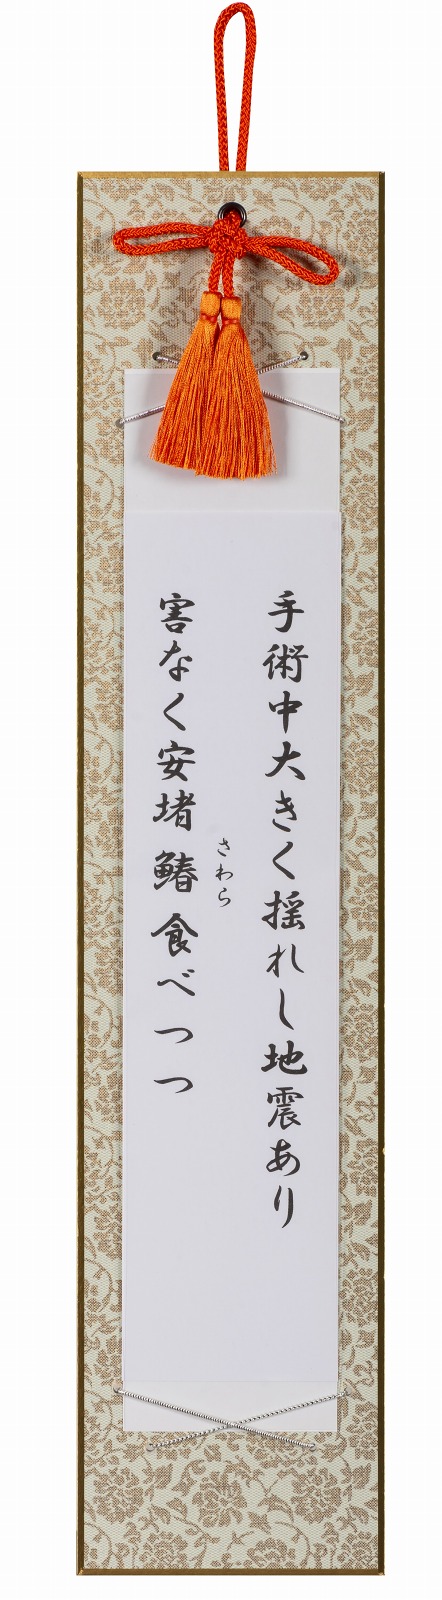 手術中大きく揺れし地震あり
さわら
害なく安堵鰆食べつつ